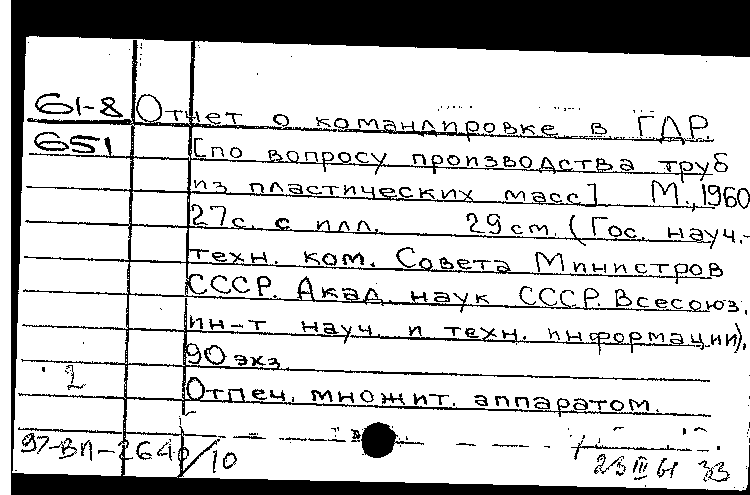 61-8 Отчет о командировке в ГДР
651 [по вопросу производства труб
из пластических масс] М., 1960
27с. с илл. 29 см. (Гос. науч.-
техн. ком. Совета Министров
СССР. Акад. наук СССР. Всесоюз.
ин-т науч. и техн. информации).
90 экз.
2 Отпеч. множит. аппаратом.
97-ВП-2640/10
23 III 61 33